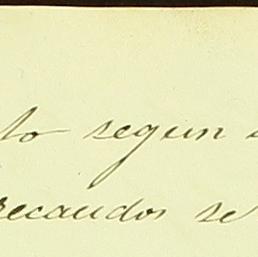 to segun
recaudos se